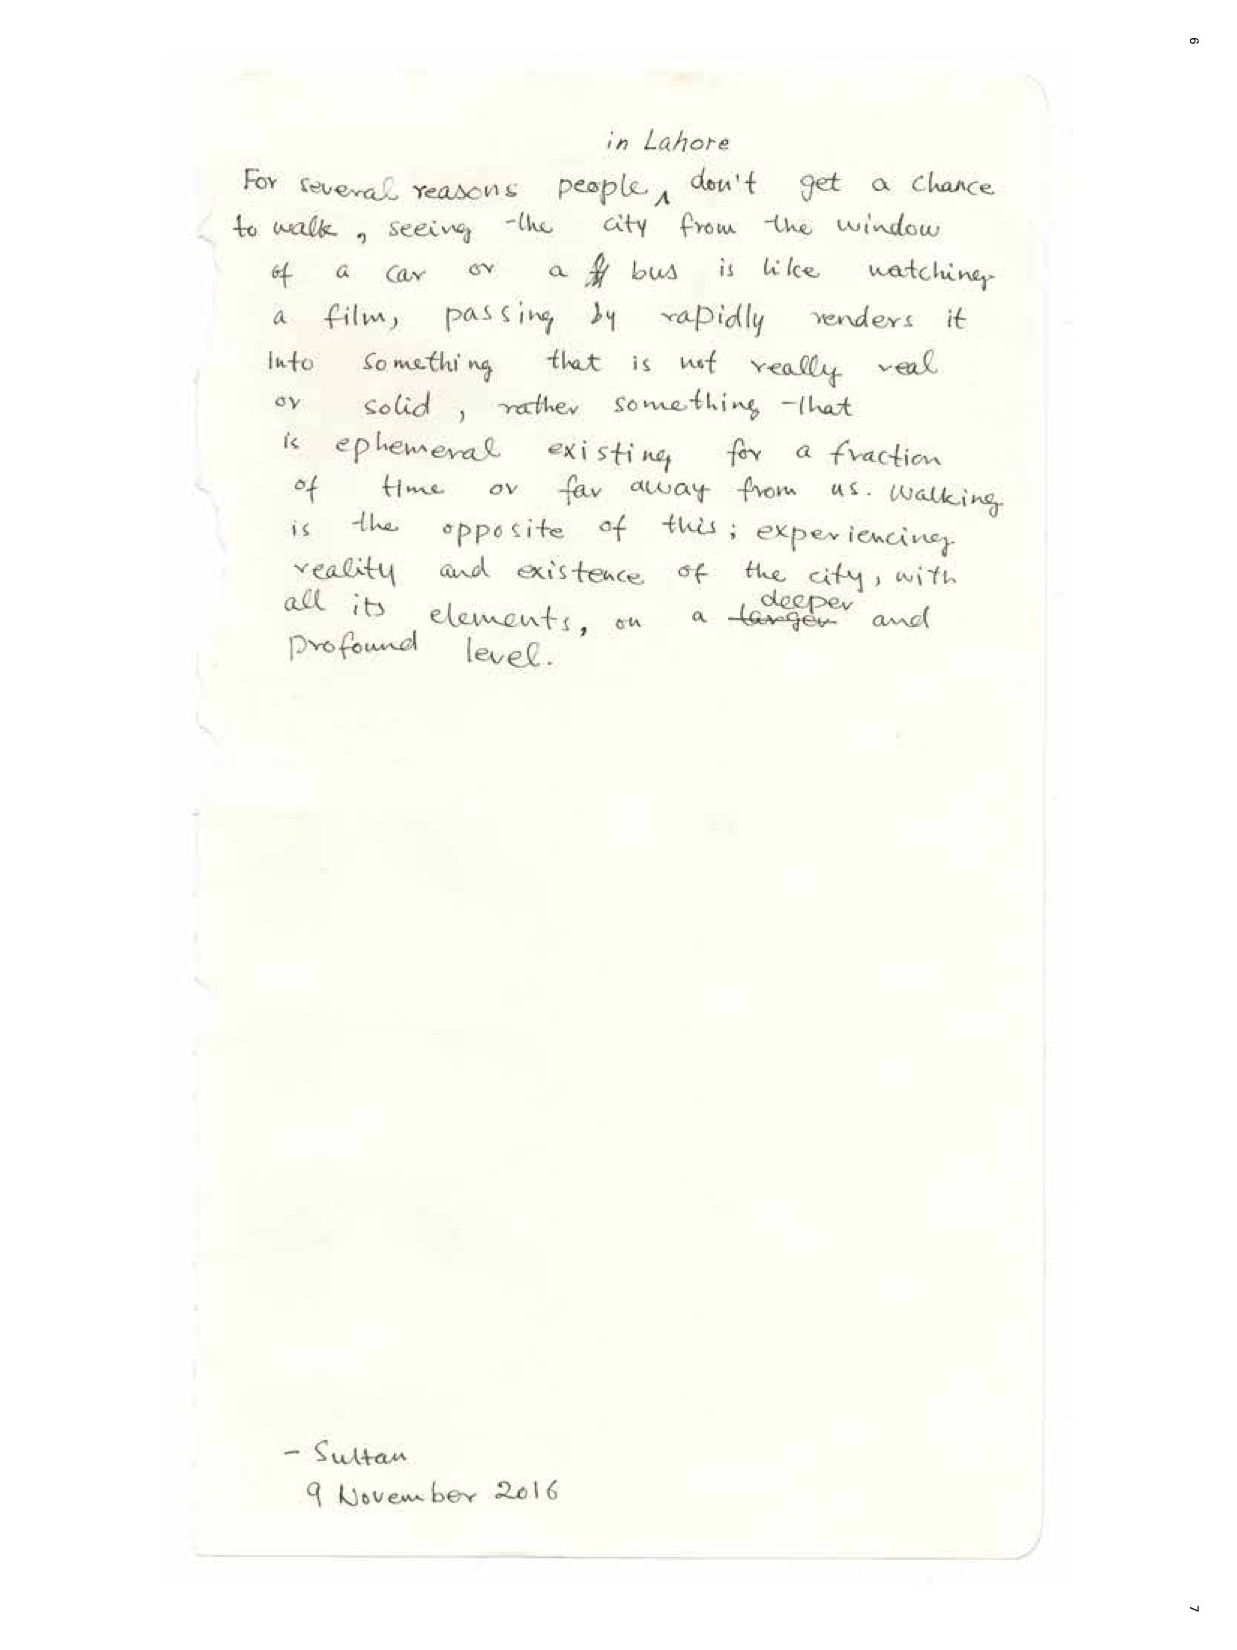 6
in Lahore
For several reasons people ‸ don't get a chance
to walk, seeing the city from the window
of a car or a bus is like watching
a film, passing by rapidly renders it
into something that is not really real
or solid, rather something that
is ephemeral existing for a fraction
of time or far away from us. Walking
is the opposite of this; experiencing
reality and existence of the city, with
deeper
all its elements, on a larger and
profound level.
- Sultan
9 November 2016
7